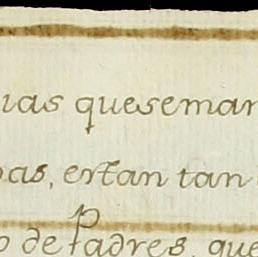 uas quesemar
pas, estan tan
o de Padres, que